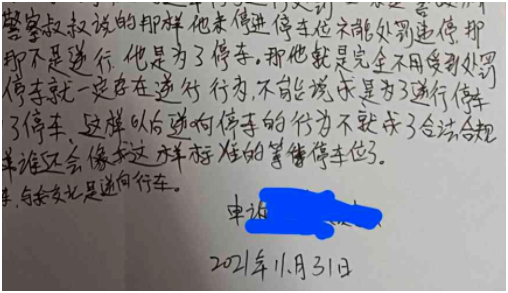 警察叔叔说的那样他未停进停车位不能处罚违停,那
那不是逆行,他是为了停车。那他就是完全不用受到处罚
停车就一定存在逆行行为,不能说成是为了逆行停车
了停车,这样以后逆向停车的行为不就成了合法合规
谁还会像我这样标准的等候停车位了。
是逆向行车。
申诉
2021年11月31日